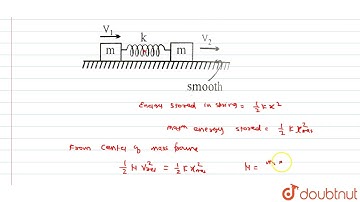 V₁
k
V₂
m
m
smooth
Energy stored in string = 1/2 k x²
max energy stored = 1/2 k x²max
From center of mass frame
1/2 M V²rel = 1/2 k x²max M =
doubtnut